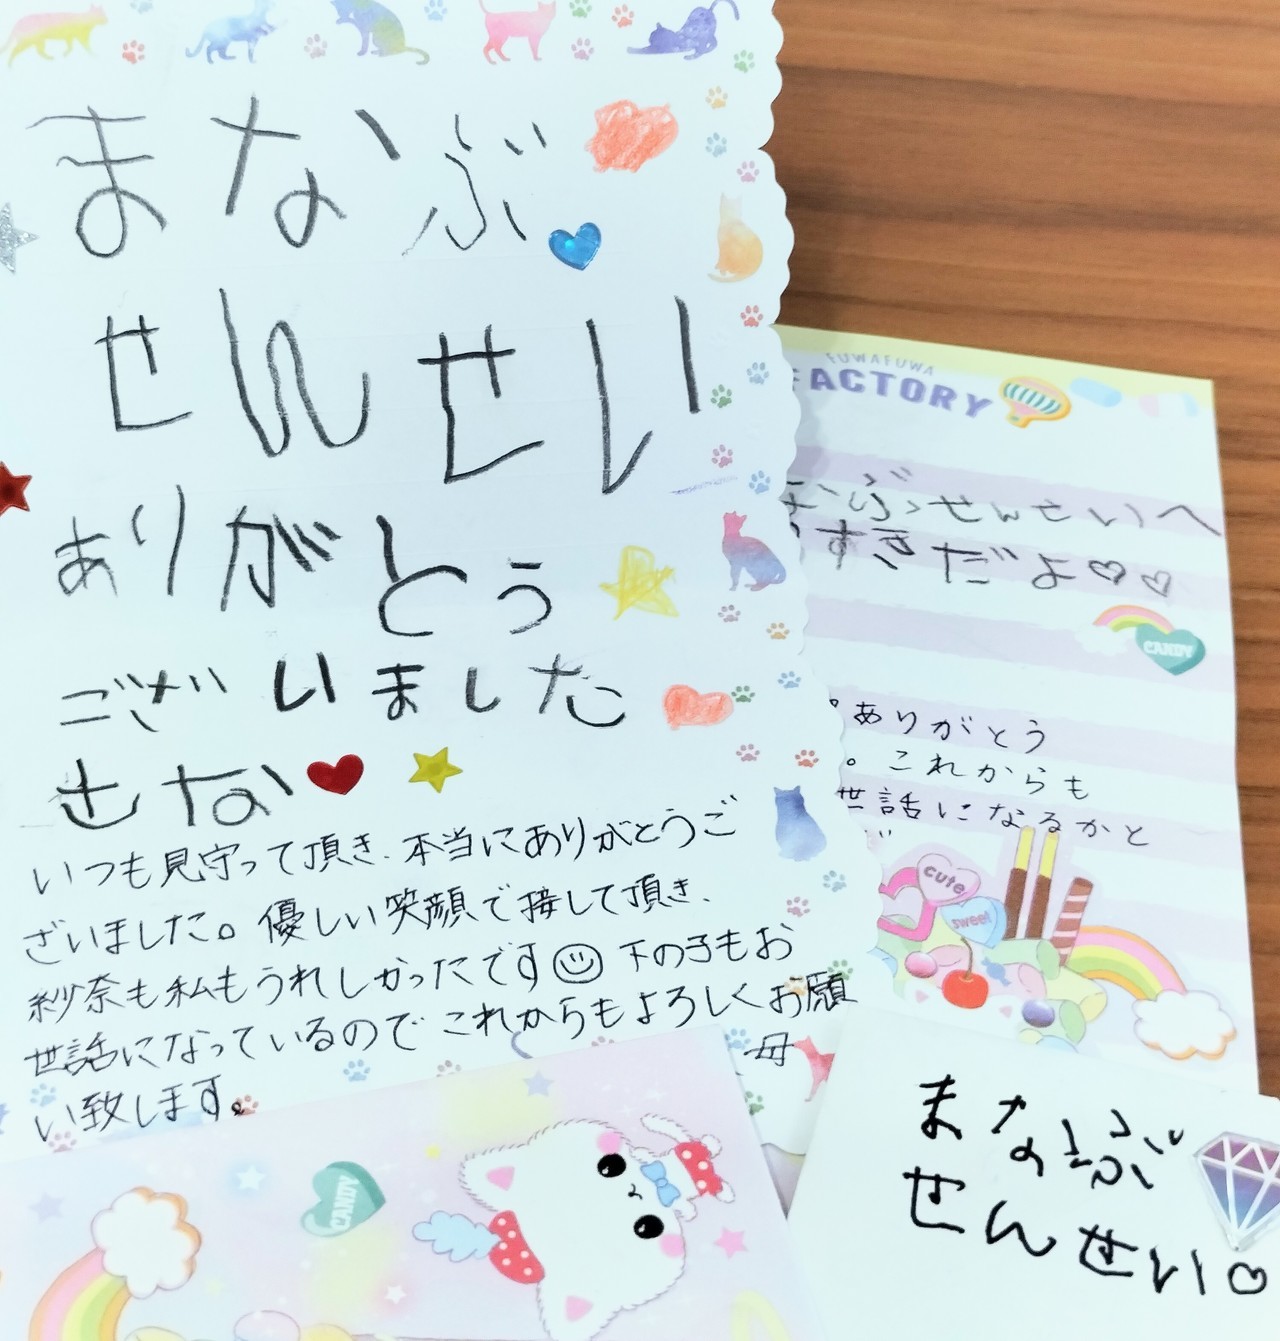 まなぶ
せんせい
ありがとう
ございました
さな
いつも見守って頂き、本当にありがとうご
ざいました。優しい笑顔で接して頂き、
紗奈も私もうれしかったです
下の子もお
世話になっているのでこれからもよろしくお願
い致します。
母
FUWAFUWA
FACTORY
なぶせんせいへ
すきだよ♡♡
CANDY
ありがとう
。これからも
世話になるかと
cute
sweet
CANDY
まなぶ
せんせい♡